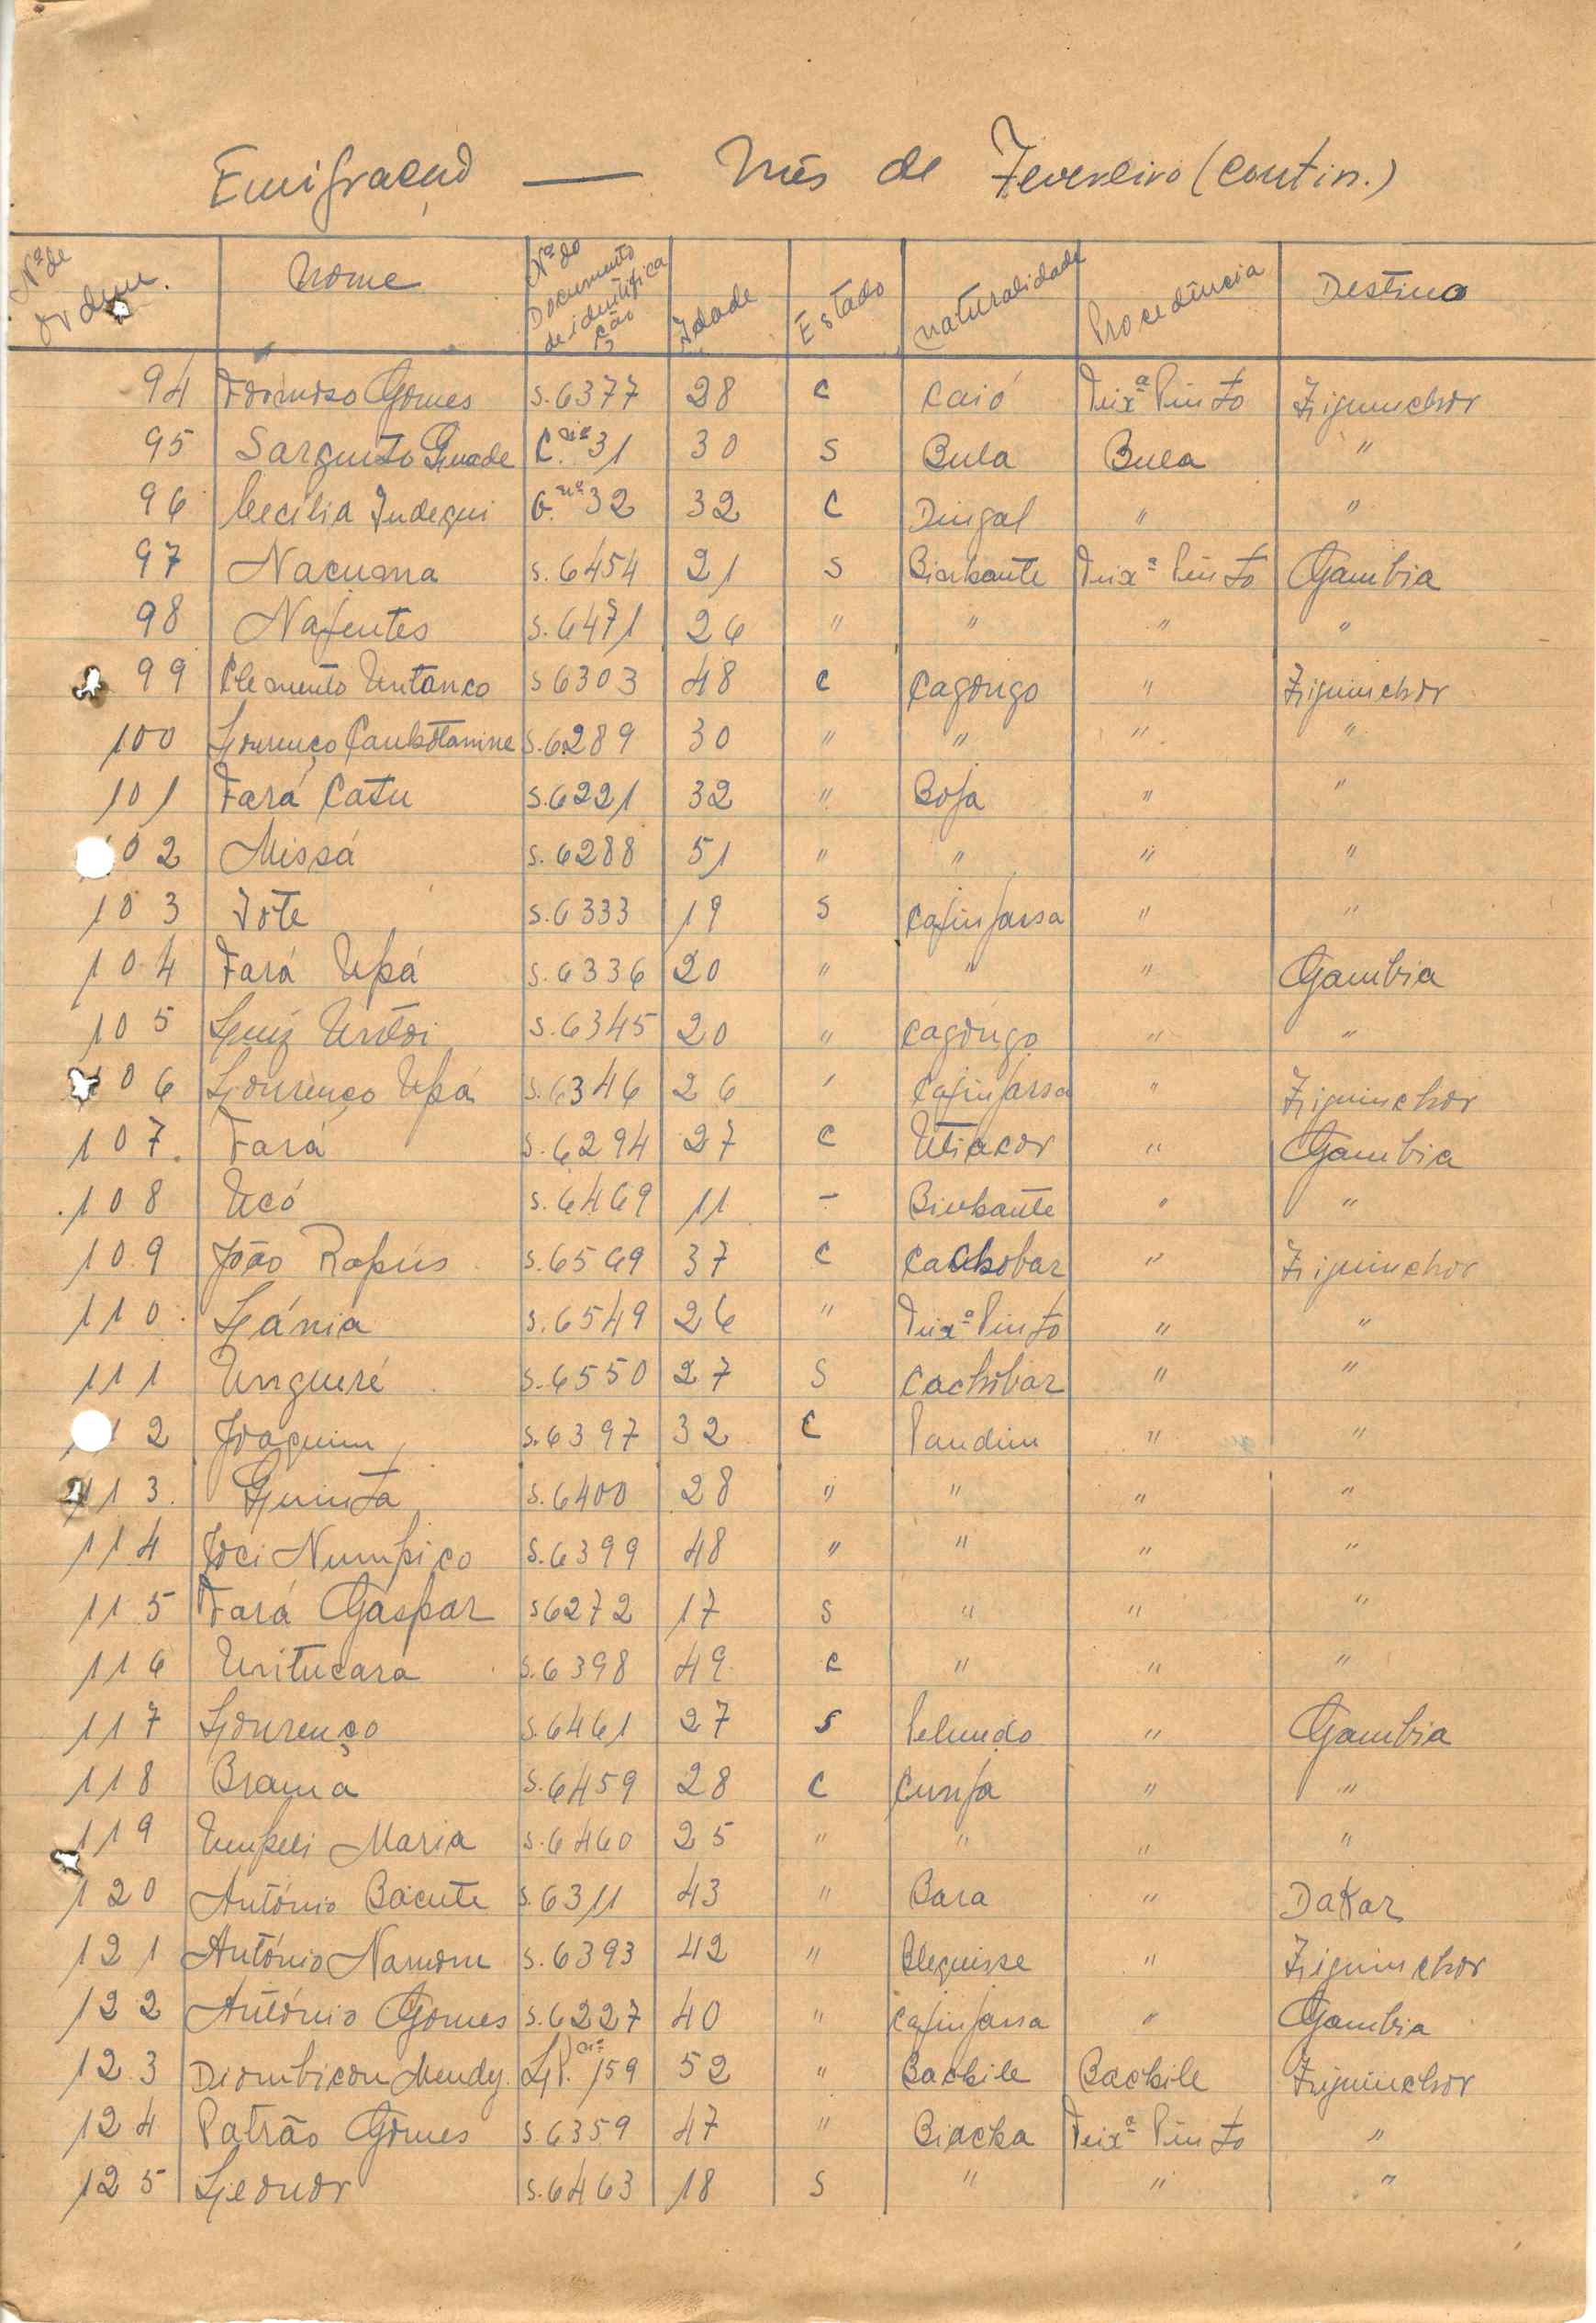 Emigração — Mês de Fevereiro (contin.)
Nº de ordem. Nome Nº do Documento de identificação Idade Estado naturalidade Procedência Destino
94 Formoso Gomes S.6377 28 C Caió Teixª Pinto Ziguinchor
95 Sargento S. 31 30 S Bula Bula "
96 Cecília Indequi 32 32 C Dingal " "
97 Nacuma S.6454 21 S Binhante Teixª Pinto Gambia
98 Nafentes S.6471 26 " " " "
99 Clemento Untanco S 6303 48 C Cagongo " Ziguinchor
100 Lourenço S.6289 30 " " " "
101 Fará Catu S.6221 32 " Bofa " "
02 Missá S.6288 51 " " " "
103 Jote S.6333 19 S Cafinfarsa " "
104 Fará Upá S.6336 20 " " " Gambia
105 Luiz S.6345 20 " Cagongo " "
106 Lourenço Upá S.6346 26 ' Cafinfarsa " Ziguinchor
107. Fará S.6294 27 C Utiacor " Gambia
108 Ucó S.6469 11 - Binhante " "
109 João Rapus S.6569 37 C Cachobar " Ziguinchor
110 Lánia S.6549 26 " Teixª Pinto " "
111 Ungueré S.6550 27 S Cachobar " "
112 Joaquim S.6397 32 C Pandim " "
113. Quinta S.6400 28 " " " "
114 Joci Numpico S.6399 48 " " " "
115 Fará Gaspar S6272 17 S " " "
116 Unitucara S.6398 49 C " " "
117 Lourenço S.6461 27 S Pelundo " Gambia
118 Brama S.6459 28 C Cunfa " "
119 Umpeli Maria S.6460 25 " " " "
120 António Bacute S.6311 43 " Bara " Dakar
121 António Namom S.6393 42 " Blequisse " Ziguinchor
122 António Gomes S.6227 40 " Cafinfarsa " Gambia
123 Diombicou Mendy. 159 52 " Bachile Bachile Ziguinchor
124 Patrão Gomes S.6359 47 " Biacha Teixª Pinto "
125 Leonor S.6463 18 S " " "